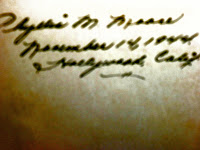 Phyllis M. Moore
November 14, 1944
Hollywood, Calif